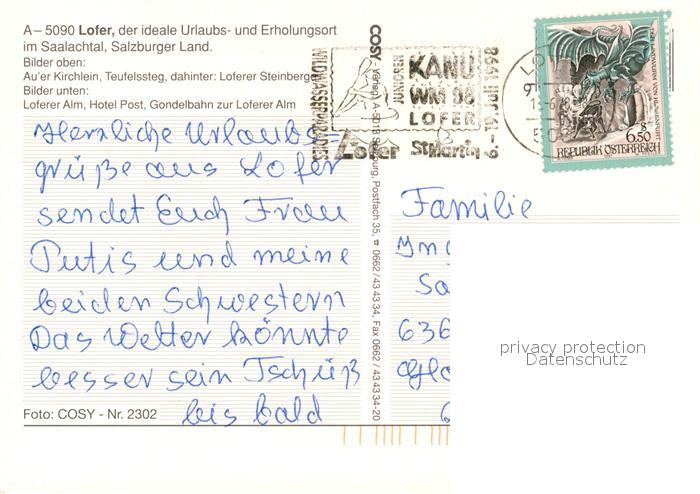 A – 5090 Lofer, der ideale Urlaubs- und Erholungsort
im Saalachtal, Salzburger Land.
Bilder oben:
Au'er Kirchlein, Teufelssteg, dahinter: Loferer Steinberge
Bilder unten:
Loferer Alm, Hotel Post, Gondelbahn zur Loferer Alm
Herzliche Urlaubs=
grüße aus Lofer
sendet Euch Frau
Putis und meine
beiden Schwestern
Das Wetter könnte
besser sein Tschüß
bis bald
Foto: COSY - Nr. 2302
COSY Verlag A-5013 Salzburg, Postfach 35, ☎ 0662/43 43 34, Fax 0662/43 43 34-20
WILDWASSERPARADIES
KANU
JUNIOREN
WM 98
LOFER
Lofer St. Martin
6.50
REPUBLIK ÖSTERREICH
Familie
Sa
636
privacy protection
Datenschutz